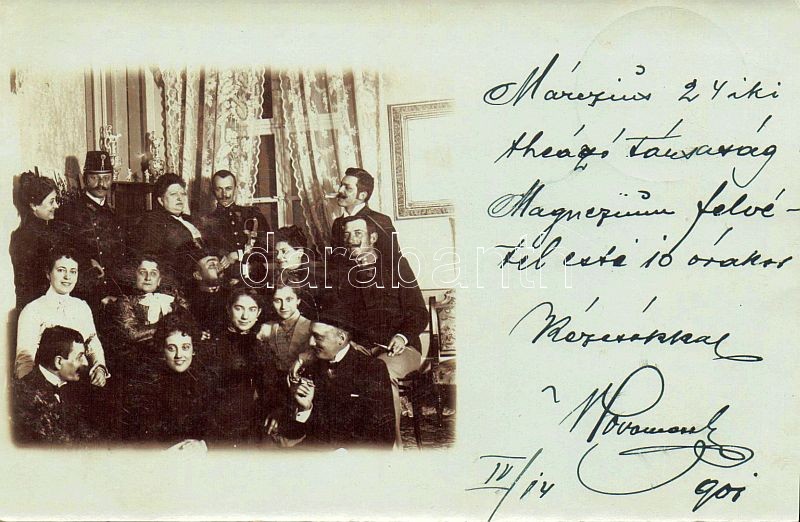 Márczius 24 iki
theázó társaság
Magnezium felvé-
tel este 10 órakor
Kézcsókkal
IV/14 901
darabanth